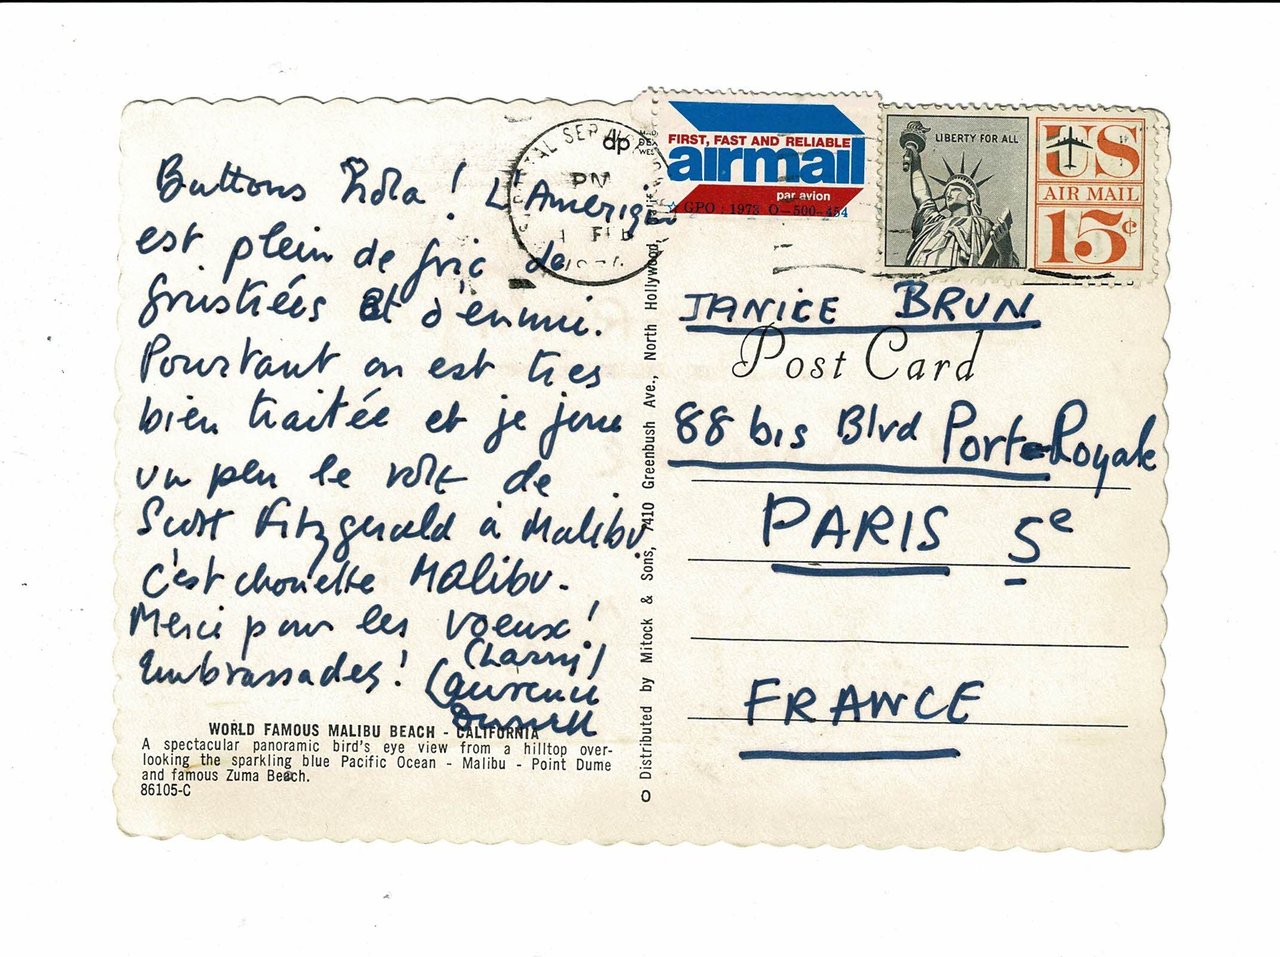 Buttons Hola! L'Amerique
est plein de fric de
frustrées et d'ennui.
Pourtant on est tres
bien traitée et je joue
un peu le role de
Scott Fitzgerald à Malibu
c'est chouette Malibu.
Merci pour les voeux!
Embrassades! (Larry)
Laurence
Durrell
WORLD FAMOUS MALIBU BEACH - CALIFORNIA
A spectacular panoramic bird's eye view from a hilltop over-
looking the sparkling blue Pacific Ocean - Malibu - Point Dume
and famous Zuma Beach.
86105-C
Distributed by Mitock & Sons, 7410 Greenbush Ave., North Hollywood,
dp
PM
FEB
FIRST, FAST AND RELIABLE
airmail
par avion
☆ GPO : 1973 O-500-454
LIBERTY FOR ALL
US
AIR MAIL
15¢
JANICE BRUN
Post Card
88 bis Blvd Port-Royale
PARIS 5e
FRANCE